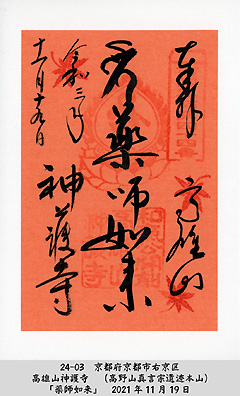 奉拝
高雄山
薬師如来
令和三年
十一月十九日
神護寺
24-03 京都府京都市右京区
高雄山神護寺 (高野山真言宗遺迹本山)
「薬師如来」 2021年11月19日